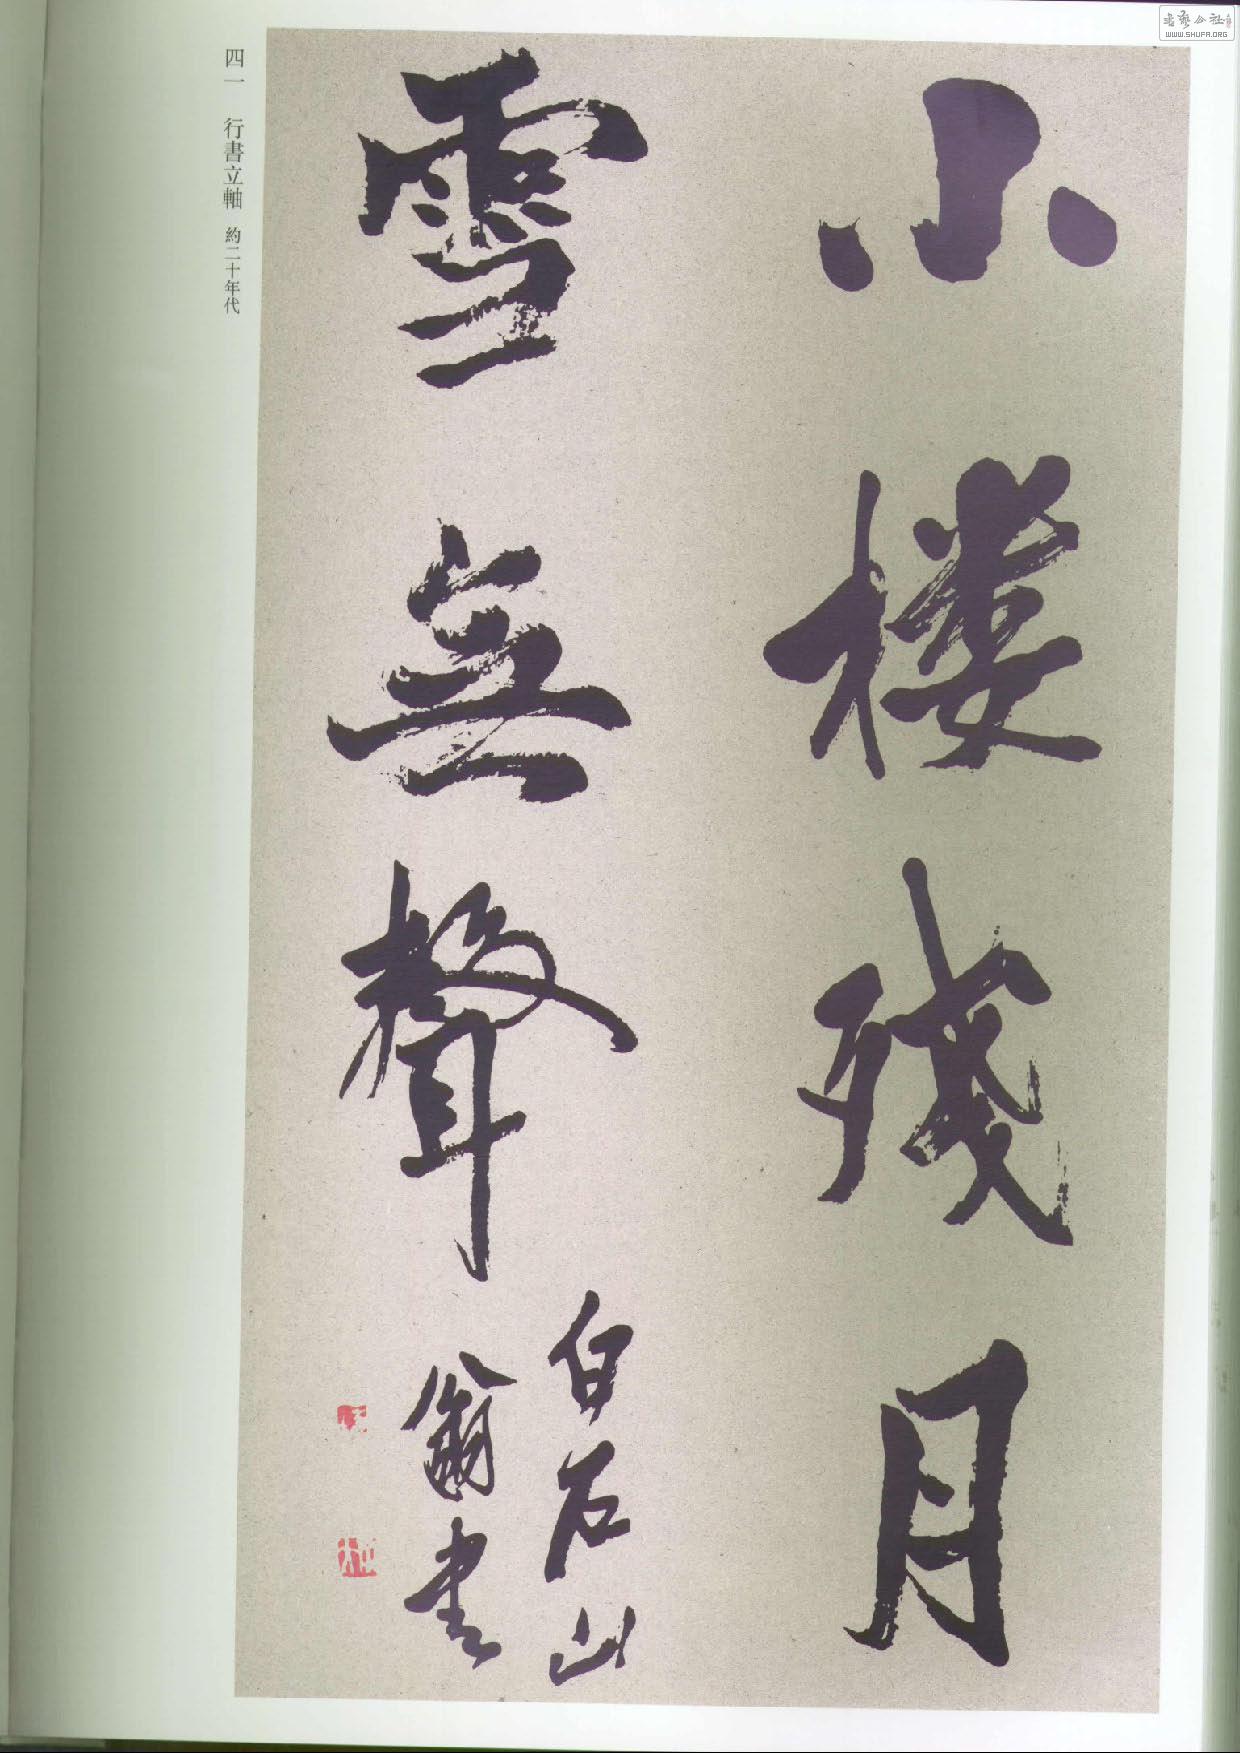 小楼残月
雪無聲
白石山
翁書
四一 行書立軸 約二十年代
書藝公社
WWW.SHUFA.ORG